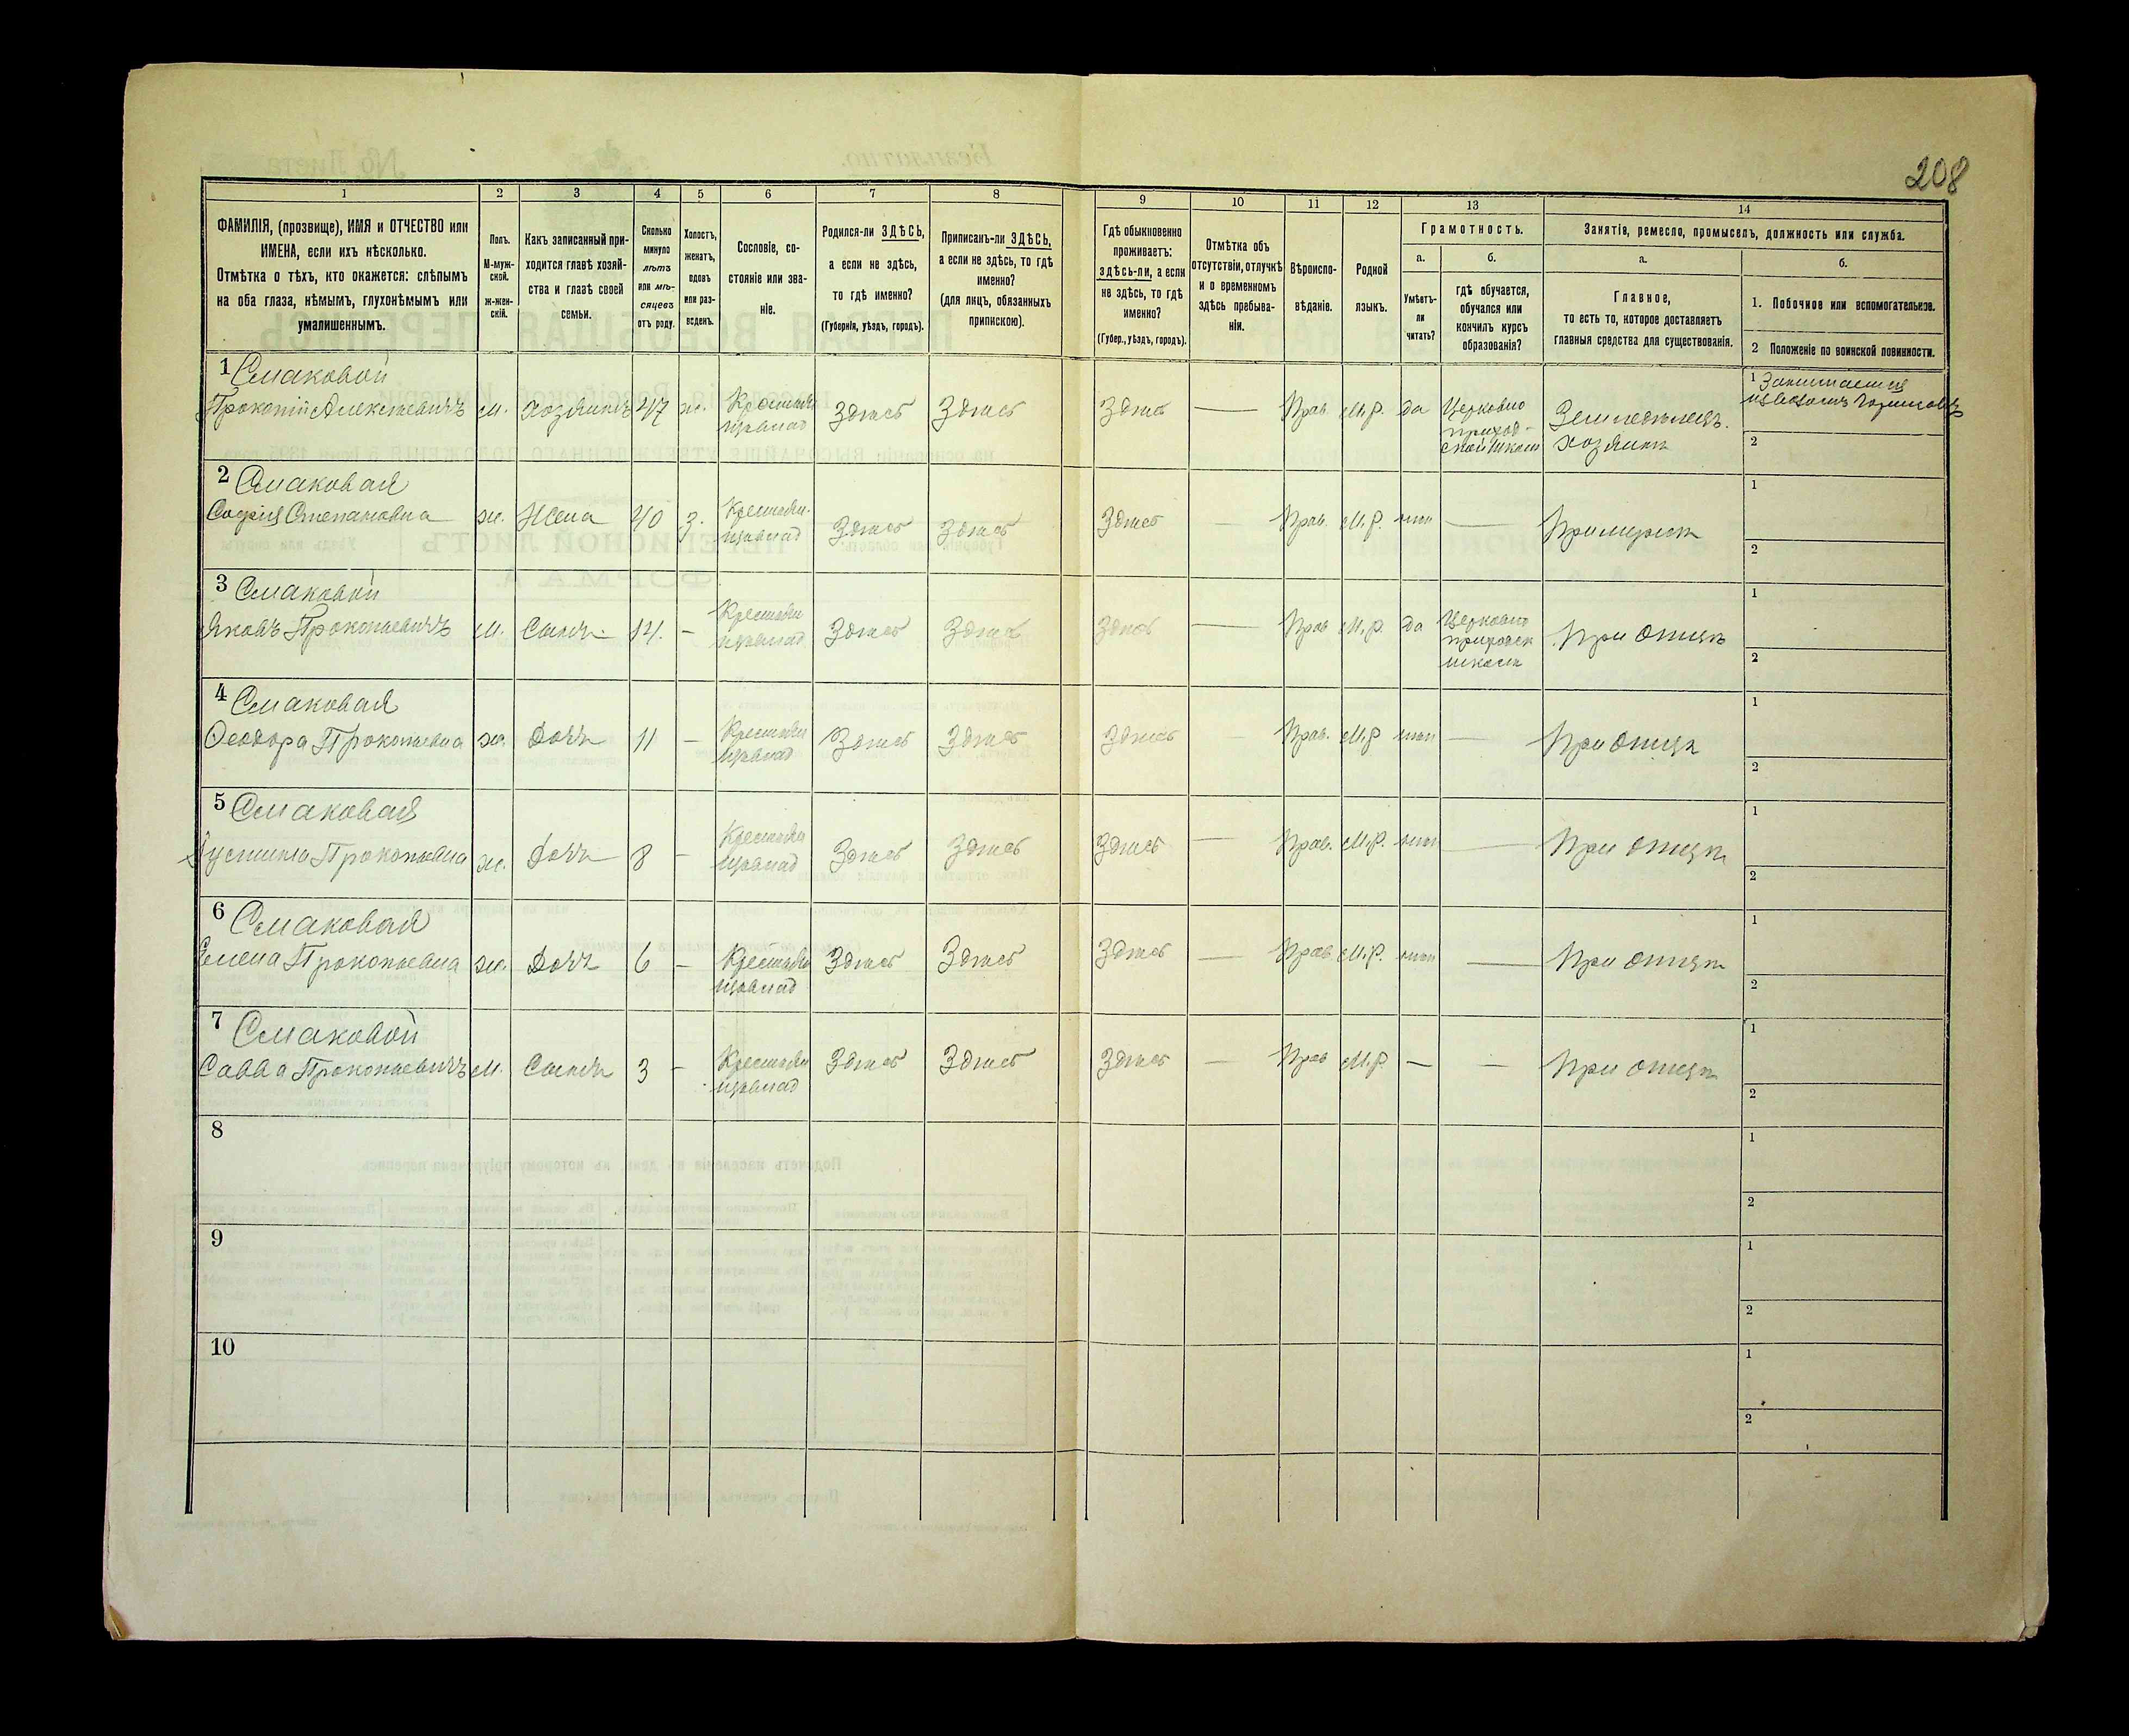 208
1
2
3
4
5
6
7
8
9
10
11
12
13
14
ФАМИЛІЯ, (прозвище), ИМЯ и ОТЧЕСТВО или
ИМЕНА, если ихъ нѣсколько.
Отмѣтка о тѣхъ, кто окажется: слѣпымъ
на оба глаза, нѣмымъ, глухонѣмымъ или
умалишеннымъ.
Полъ.
М-муж-
ской.
ж-жен-
скій.
Какъ записанный при-
ходится главѣ хозяй-
ства и главѣ своей
семьи.
Сколько
минуло
лѣтъ
или мѣ-
сяцевъ
отъ роду.
Холостъ,
женатъ,
вдовъ
или раз-
веденъ.
Сословіе, со-
стояніе или зва-
ніе.
Родился-ли ЗДѢСЬ,
а если не здѣсь,
то гдѣ именно?
(Губернія, уѣздъ, городъ).
Приписанъ-ли ЗДѢСЬ,
а если не здѣсь, то гдѣ
именно?
(для лицъ, обязанныхъ
припискою).
Гдѣ обыкновенно
проживаетъ:
здѣсь-ли, а если
не здѣсь, то гдѣ
именно?
(Губер., уѣздъ, городъ).
Отмѣтка объ
отсутствіи, отлучкѣ
и о временномъ
здѣсь пребыва-
ніи.
Вѣроиспо-
вѣданіе.
Родной
языкъ.
Грамотность.
а.
Умѣетъ-
ли
читать?
б.
гдѣ обучается,
обучался или
кончилъ курсъ
образованія?
Занятія, ремесло, промыселъ, должность или служба.
а.
Главное,
то есть то, которое доставляетъ
главныя средства для существованія.
б.
1. Побочное или вспомогательное.
2 Положеніе по воинской повинности.
1 Смаковой
Прокопій Алексѣевичъ м. Хозяинъ 47 ж. Крестьян Здѣсь Здѣсь Здѣсь — Прав. М.р. да Церковно приход- Земледѣлецъ. хозяинъ
1 Занимается
2
2 Смаковая
Софія Степановна ж. Жена 40 з. Крестьян. Здѣсь Здѣсь Здѣсь Прав. М.р. нѣт — При мужѣ
1
2
3 Смаковой
Яковъ Прокопьевичъ м. Сынъ 14. — Крестьян Здѣсь Здѣсь Здѣсь — Прав М.р. да Церковно школѣ При отцѣ
1
2
4 Смаковая
Ѳеодора Прокопьевна ж. Дочь 11 — Крестьян Здѣсь Здѣсь Здѣсь — Прав. М.р нѣт — При отцѣ
1
2
5 Смаковая
Прокопьевна ж. Дочь 8 — Крестьян Здѣсь Здѣсь Здѣсь — Прав. М.р. нѣт — При отцѣ
1
2
6 Смаковая
Елена Прокопьевна ж. Дочь 6 — Крестьян Здѣсь Здѣсь Здѣсь — Прав М.р. нѣт — При отцѣ
1
2
7 Смаковой
Савва Прокопьевичъ м. Сынъ 3 — Крестьян Здѣсь Здѣсь Здѣсь — Прав М.р. — — При отцѣ
1
2
8
1
2
9
1
2
10
1
2